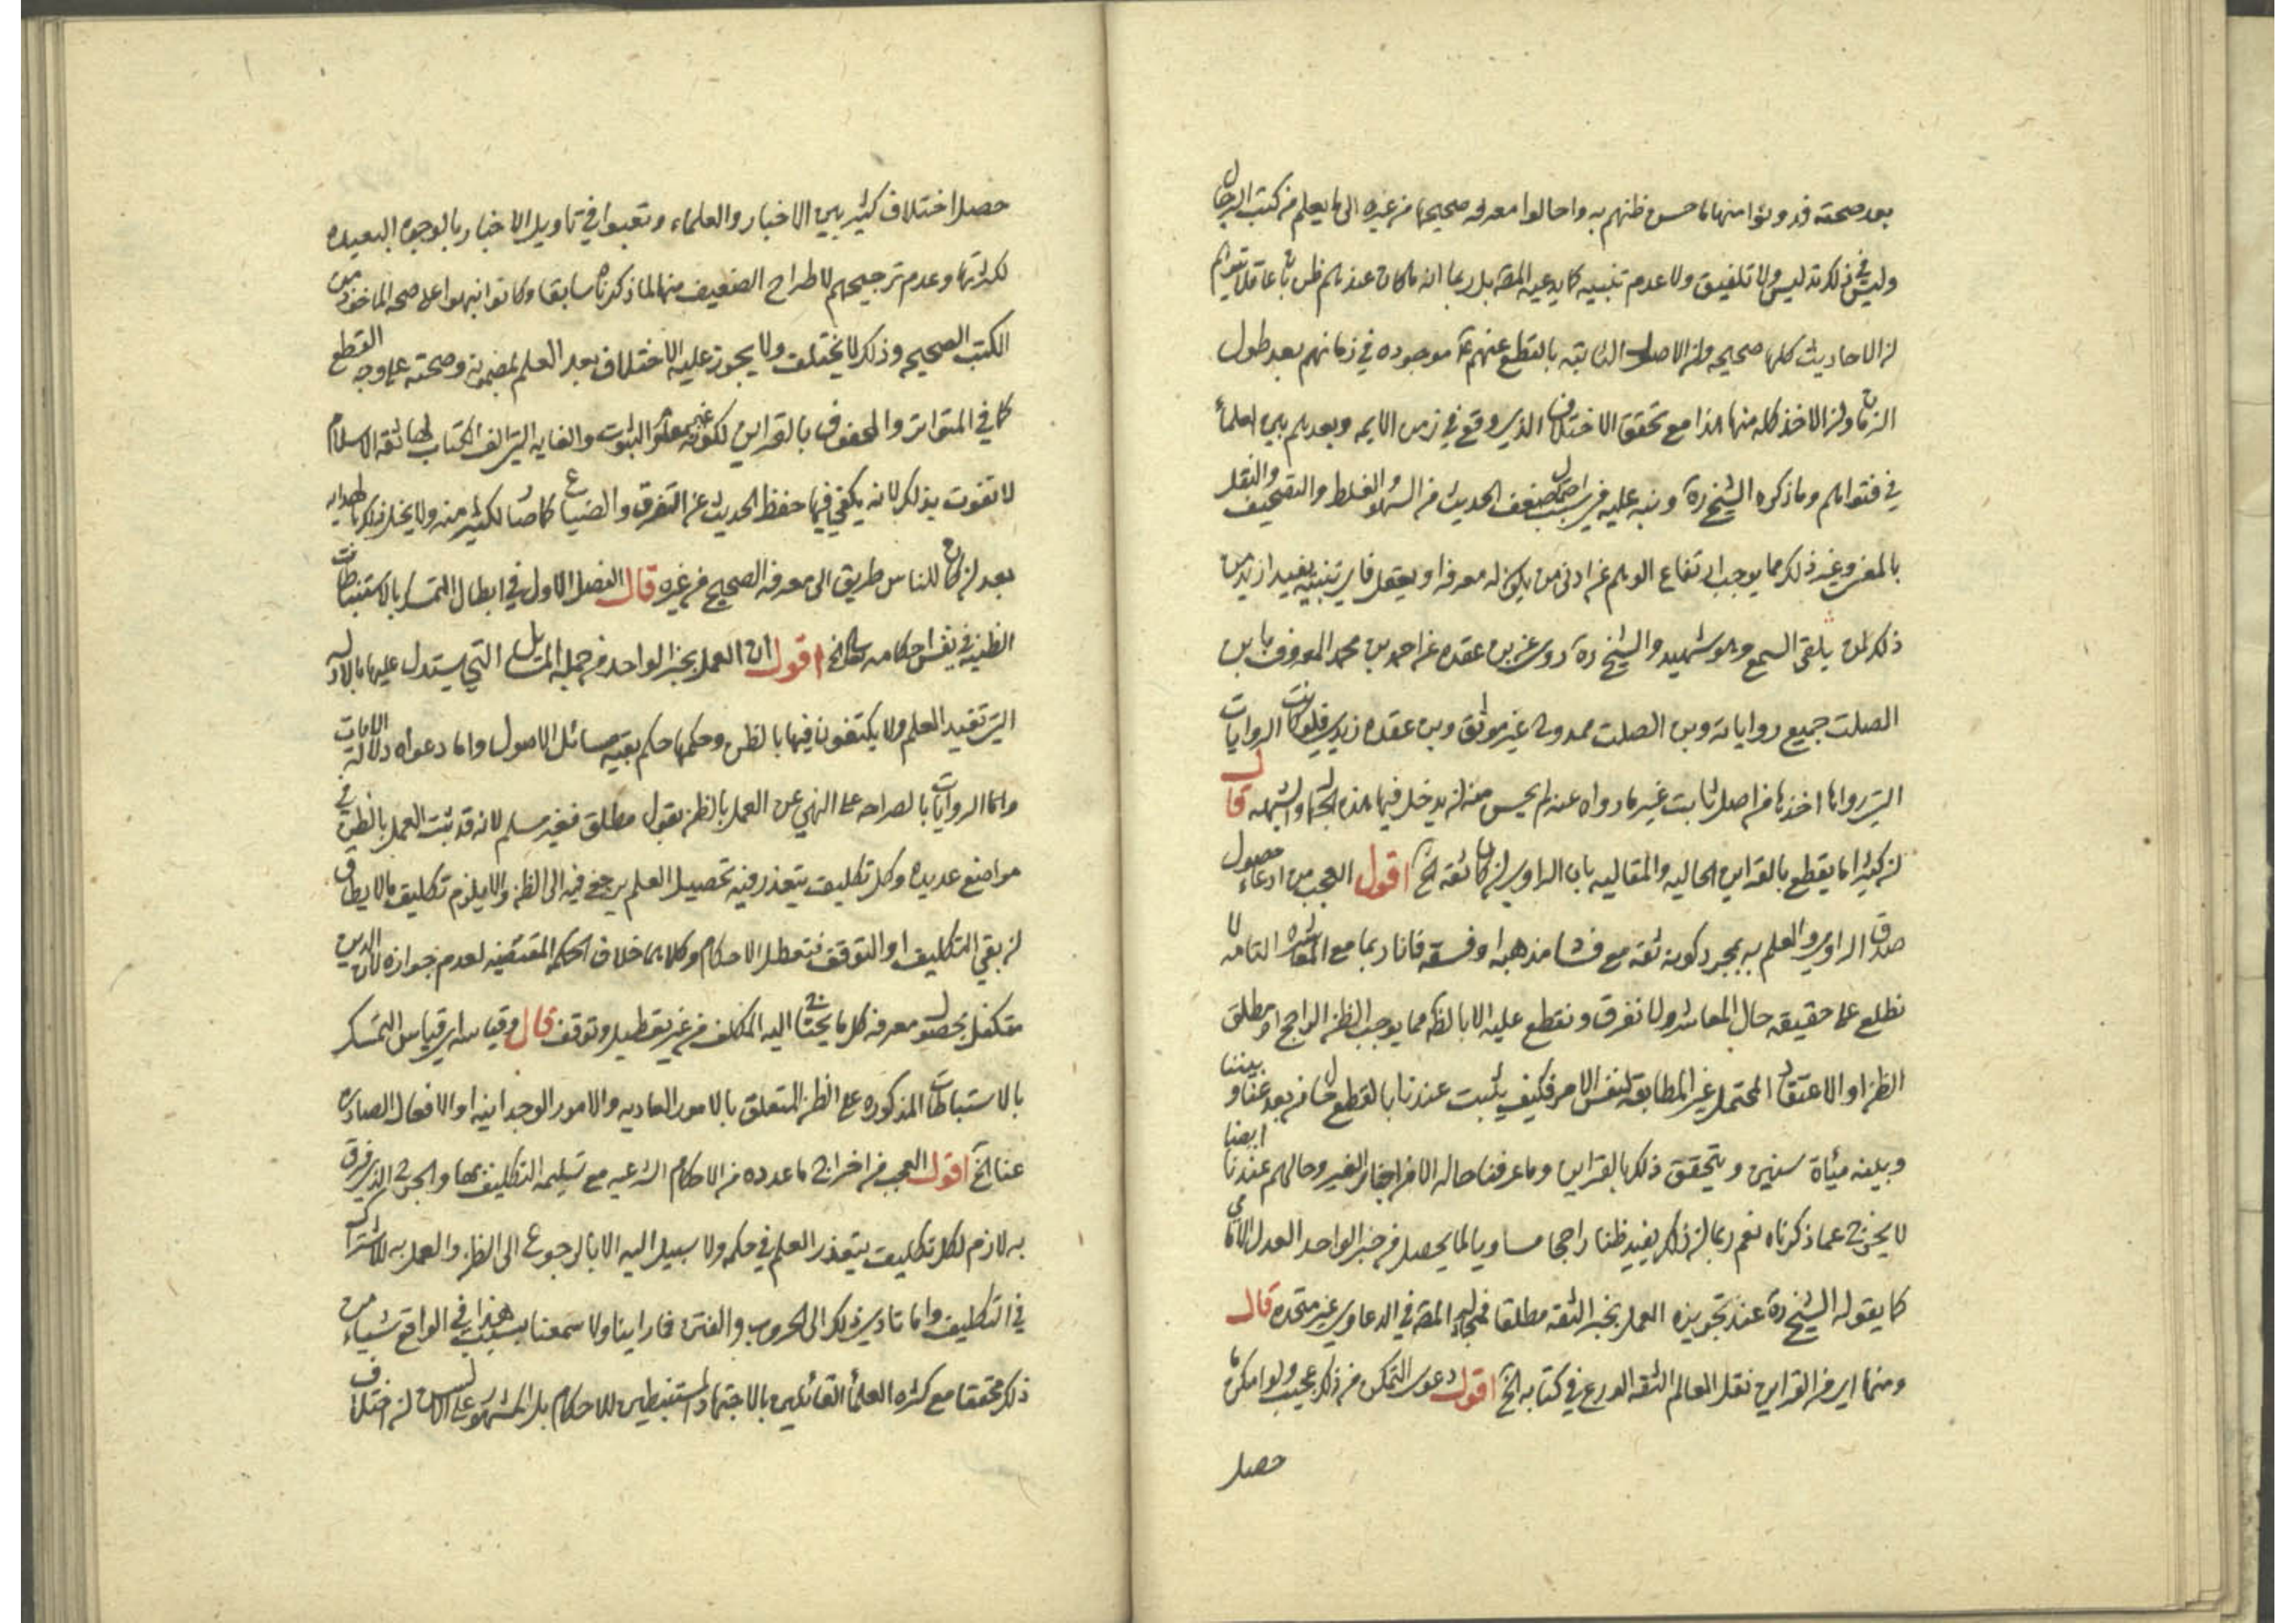 بعد صحته قد دونوا منها ما حسن ظنهم به واحالوا معرفه صحيحها من غيره الى ما يعلم من كتب الرجال
وليس في ذلك تدليس ولا تلفيق ولا عدم تنبيه كما يدعيه المصّ بل ربما انه ما كان عندهم ظن بان عاقلا يتوهم
ان الاحاديث كلها صحيحه وان الاصول الثابته بالقطع عنهم ع موجوده في زمانهم بعد طول
الزمان وان الاخذ كله منها هذا مع تحقق الاختلاف الذي وقع في زمن الايمه وبعدهم بين العلماء
في فتواهم وما ذكره الشيخ ره ونبه عليه في اسباب ضعف الحديث من السهو والغلط والتصحيف والنقل
بالمعنى وغير ذلك مما يوجب ارتفاع الوهم عن ادنى من يكون له معرفه او يعقل فاي تنبيه يفيد ازيد من
ذلك لمن يلقى السمع وهو شهيد والشيخ ره روى عن بن عقده عن احمد بن محمد المعروف بابن
الصلت جميع رواياته وبن الصلت ممدوح غير موثق وبن عقده زيدي فلو كانت الروايات
التي رواها اخذها من اصل ثابت غير ما رواه عندهم لم يحسن منه ان يدخل فيها هذه الجهاله والشبهه قال
ان كثيرا ما يقطع بالقراين الحاليه والمقاليه بان الراوي ان كان ثقه الخ اقول العجب من ادعاء حصول
صدق الراوي والعلم به بمجرد كونه ثقه مع فساد مذهبه او فسقه فانا ربما مع المعاشره التامه لا
نطلع على حقيقه حال المعاشر ولا نفرق ونقطع عليه الا بالظن مما يوجب الظن الراجح او مطلق
الظن او الاعتقاد المحتمل غير المطابقه لنفس الامر فكيف يثبت عندنا بالقطع حال من بعد عنا وبيننا
وبينه مياة سنين ويتحقق ذلك بالقراين وما عرفنا حاله الا من اخبار الغير وحالهم عندنا ايضا
لا يخرج عما ذكرناه نعم ربما ان ذلك يفيد ظنا راجحا مساويا لما يحصل من خبر الواحد العدل الامامي
كما يقوله الشيخ ره عند تجويزه العمل بخبر الثقه مطلقا المصّ في الدعاوي غير متحده قال
ومنها اي من القراين نقل العالم الثقه الورع في كتابه الخ اقول دعوى التمكن من ذلك عجيب ولو امكن ما
حصل
حصل اختلاف كثير بين الاخبار والعلماء وتعبوا في تاويل الاخبار بالوجوه البعيده
لكثرتها وعدم ترجيحهم لاطراح الضعيف منها لما ذكرناه سابقا وكانوا نبهوا على صحه الماخوذ من
الكتب الصحيحه وذلك لا يختلف ولا يجوز عليه الاختلاف بعد العلم بمضمونه وصحته على وجه القطع
كما في المتواتر والمحفوف بالقراين لكونه غير معلوم الثبوت والغايه التي الف الكتاب لها ثقه الاسلام
لا تفوت بذلك لانه يكفي فيها حفظ الحديث عن التفرق والضياع كما صار لكثير منه ولا يخل ذلك بالهدايه
بعد ان كان للناس طريق الى معرفه الصحيح من غيره قال الفصل الاول في ابطال التمسك بالاستنباطات
الظنيه في نفس احكامه تعالى الخ اقول ان العمل بخبر الواحد من جمله المسايل التي يستدل عليها بالادله
التي تفيد العلم ولا يكتفون فيها بالظن وحكمها حكم بقيه مسائل الاصول واما دعواه دلاله الايات
واما الروايات بالصراحه على النهي عن العمل بالظن بقول مطلق فغير مسلم لانه قد ثبت العمل بالظن في
مواضع عديده وكل تكليف يتعذر فيه تحصيل العلم يرجع فيه الى الظن والا يلزم تكليف ما لا يطاق
ان بقي التكليف او التوقف فتعطل الاحكام وكلاهما خلاف الحكمه المقتضيه لعدم جوازه لان الدين
متكفل بحصول معرفه كل ما يحتاج اليه المكلف من غير تعطيل وتوقف قال وقياسه اي قياس التمسك
بالاستنباطات المذكوره على الظن المتعلق بالامور العاديه والامور الوجدانيه او الافعال الصادره
عنا الخ اقول العجب من اخراج ما عدده من الاحكام الشرعيه مع تسليمه التكليف بها والحرج الذي فرق
به لازم لكل تكليف يتعذر العلم في حكمه ولا سبيل اليه الا بالرجوع الى الظن والعمل به للاشتراك
في التكليف واما تادي ذلك الى الحروب والفتن فما راينا ولا سمعنا بسبب هذا في الواقع شياء من
ذلك محققا مع كثره العلماء القائلين بالاجتهاد والمستنبطين للاحكام بل المشهور على الالسن ان اختلاف